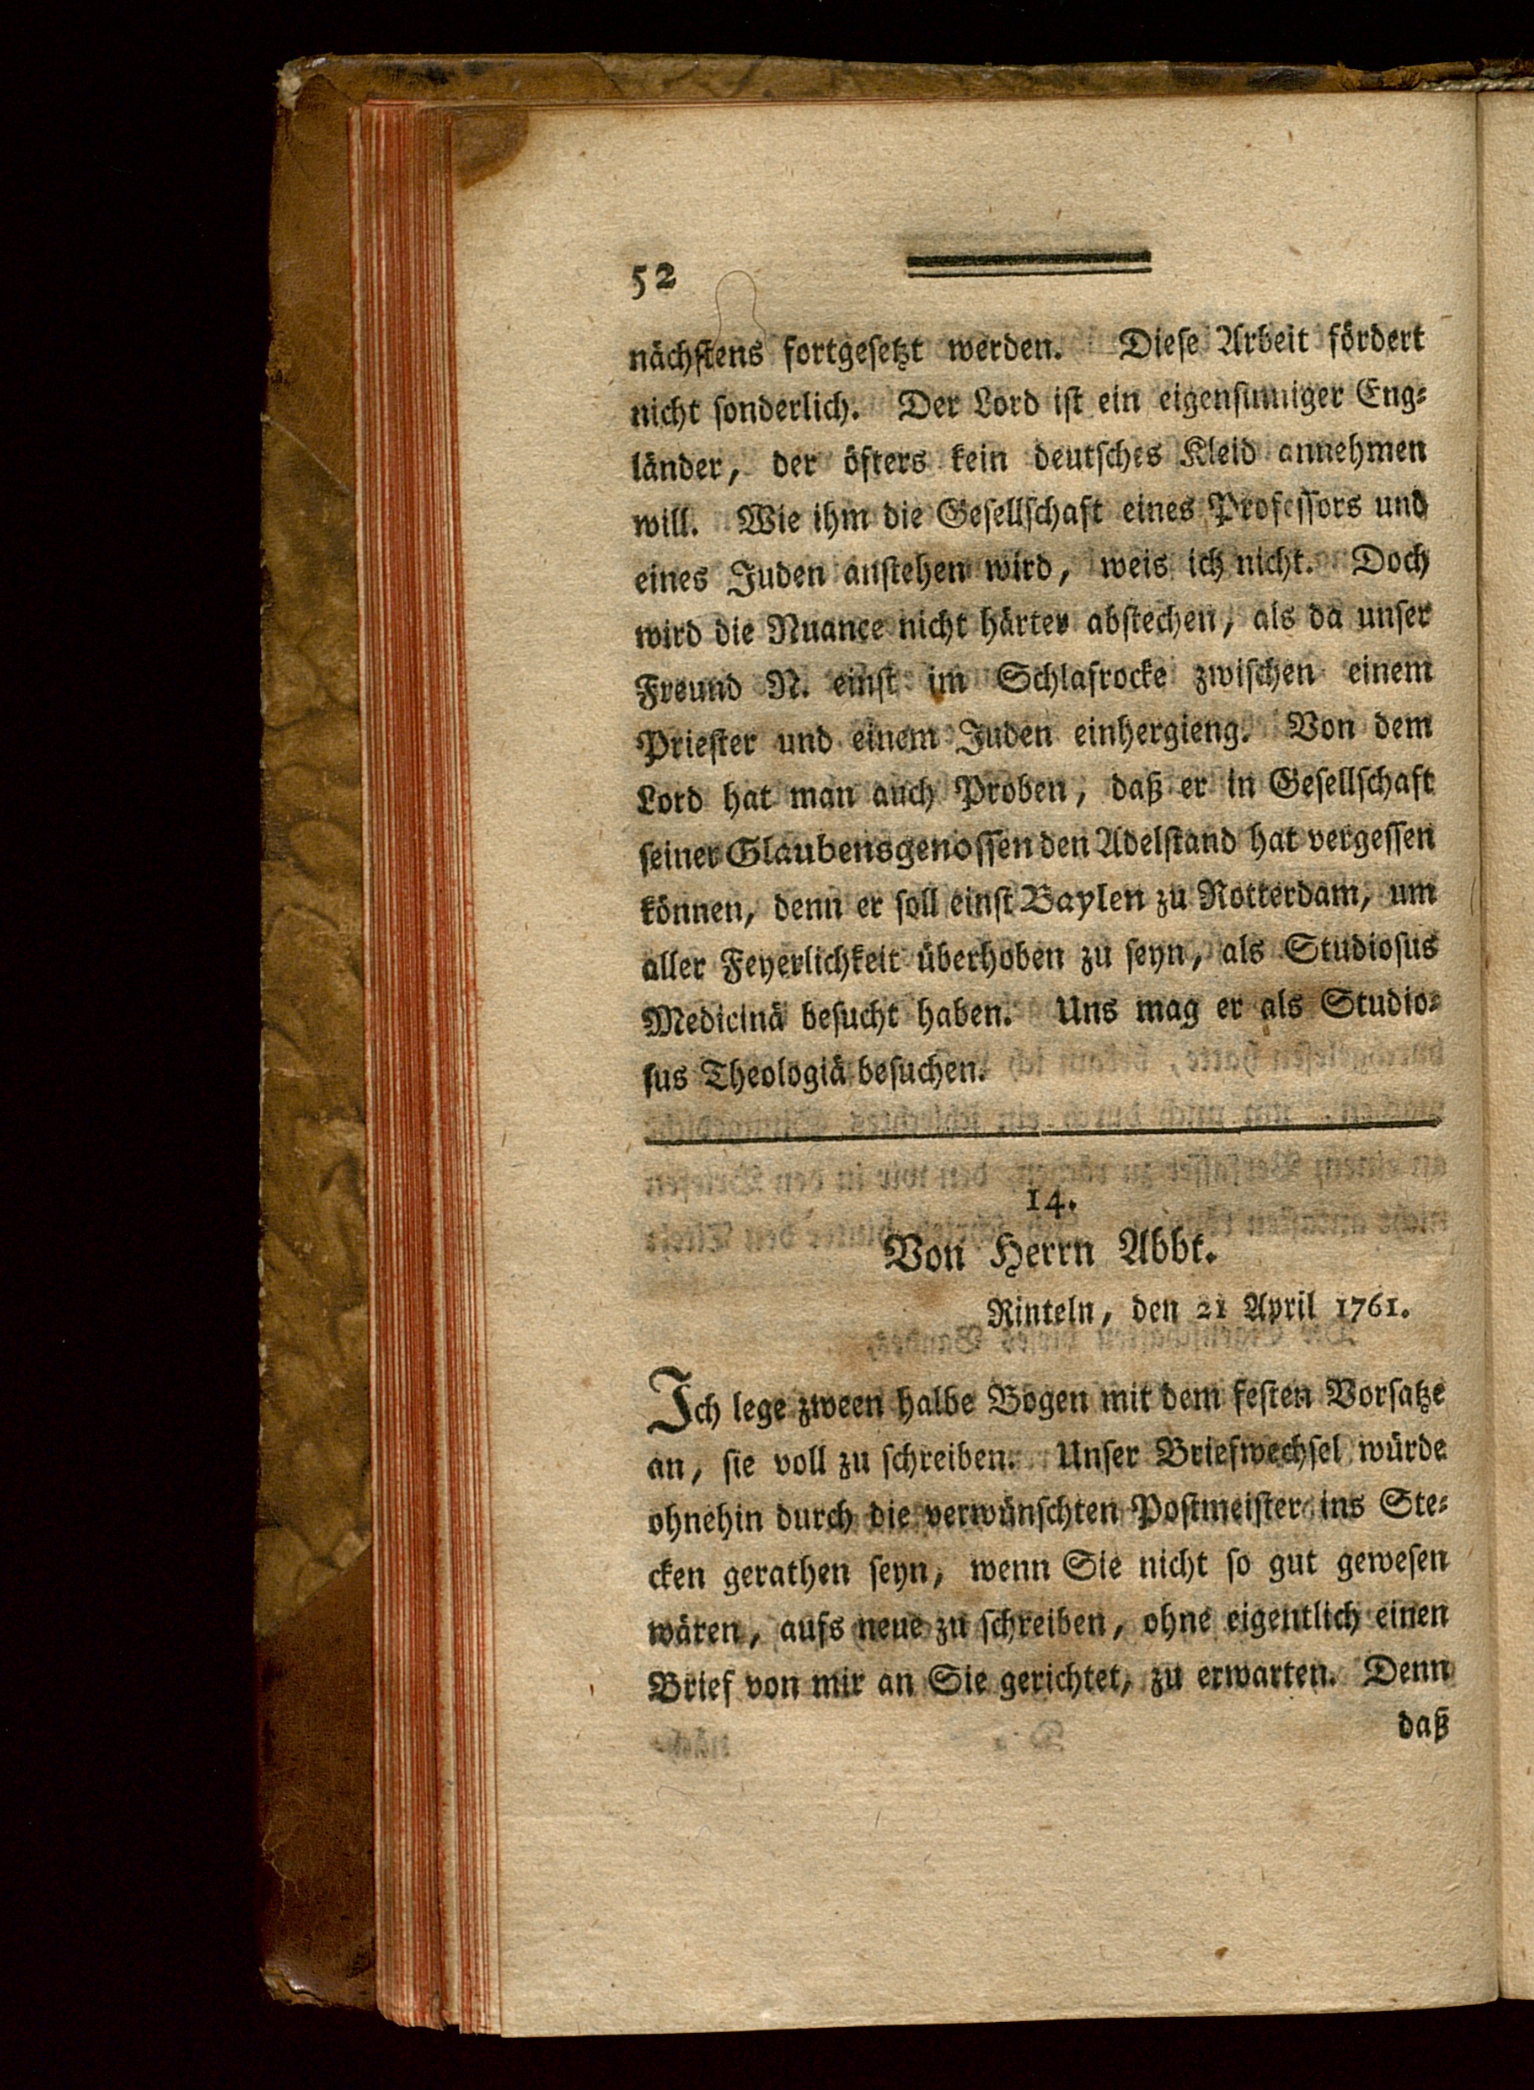 52
nächstens fortgesetzt werden. Diese Arbeit fördert
nicht sonderlich. Der Lord ist ein eigensinniger Eng⸗
länder, der öfters kein deutsches Kleid annehmen
will. Wie ihm die Gesellschaft eines Professors und
eines Juden anstehen wird, weis ich nicht. Doch
wird die Nuance nicht härter abstechen, als da unser
Freund N. einst im Schlafrocke zwischen einem
Priester und einem Juden einhergieng. Von dem
Lord hat man auch Proben, daß er in Gesellschaft
seiner Glaubensgenossen den Adelstand hat vergessen
können, denn er soll einst Baylen zu Rotterdam, um
aller Feyerlichkeit überhoben zu seyn, als Studiosus
Medicinä besucht haben. Uns mag er als Studio⸗
sus Theologiä besuchen.
14.
Von Herrn Abbt.
Rinteln, den 21 April 1761.
Ich lege zween halbe Bogen mit dem festen Vorsatze
an, sie voll zu schreiben. Unser Briefwechsel würde
ohnehin durch die verwünschten Postmeister ins Ste⸗
cken gerathen seyn, wenn Sie nicht so gut gewesen
wären, aufs neue zu schreiben, ohne eigentlich einen
Brief von mir an Sie gerichtet, zu erwarten. Denn
daß